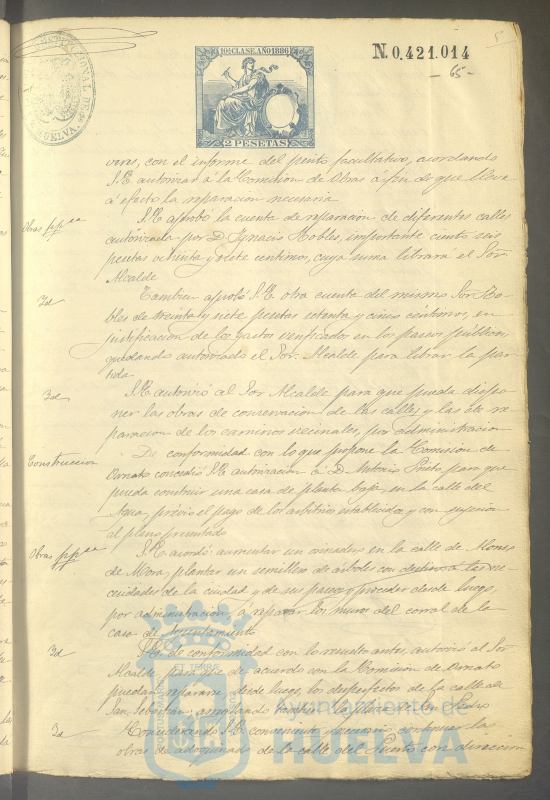 10ª CLASE. AÑO 1886
2 PESETAS
N. 0,421.014
- 65 -
HUELVA
veres, con el informe del perito facultativo, acordando
S.E. autorizar á la Comision de Obras á fin de que lleve
á efecto la reparacion necesaria
Obras pp.cas
S.E. aprobó la cuenta de reparacion de diferentes calles
autorizada por D. Ignacio Robles, importante ciento seis
pesetas veinte y siete centimos, cuya suma librará el Sor.
Alcalde
Id
Tambien aprobó S.E. otra cuenta del mismo Sor. Ro-
bles de treinta y siete pesetas setenta y cinco centimos, en
justificacion de los gastos verificados en los paseos publicos,
quedando autorizado el Sor. Alcalde para librar la par-
tida
Id
S.E. autorizó al Sor Alcalde para que pueda dispo-
ner las obras de conservacion de las calles, y las de re-
paracion de los caminos vecinales, por administracion
Construccion
De conformidad con lo que propone la Comision de
Ornato concedió S.E. autorizacion á D. Antonio Prieto para que
pueda construir una casa de planta baja, en la calle del
Agua, previo el pago de los arbitrios establecidos y con sujecion
al plano presentado
Obras pp.cas
S.E. acordó aumentar un urinario en la calle de Mones
de Mora, plantar un semillero de árboles con destino á las ne-
cesidades de la ciudad y de sus paseos y proceder desde luego,
por administracion, á reparar los muros del corral de la
casa de Ayuntamiento
Id
S.E. de conformidad con lo resuelto antes, autorizó al Sor
Alcalde para que de acuerdo con la Comision de Ornato
puedan repararse desde luego, los desperfectos de la calle de
San Sebastian, arreglando tambien la plaza de San Pedro
Id
Considerando S.E. conveniente y necesario continuar las
obras de adoquinado de la calle del Puerto con direccion
Ayuntamiento de
HUELVA